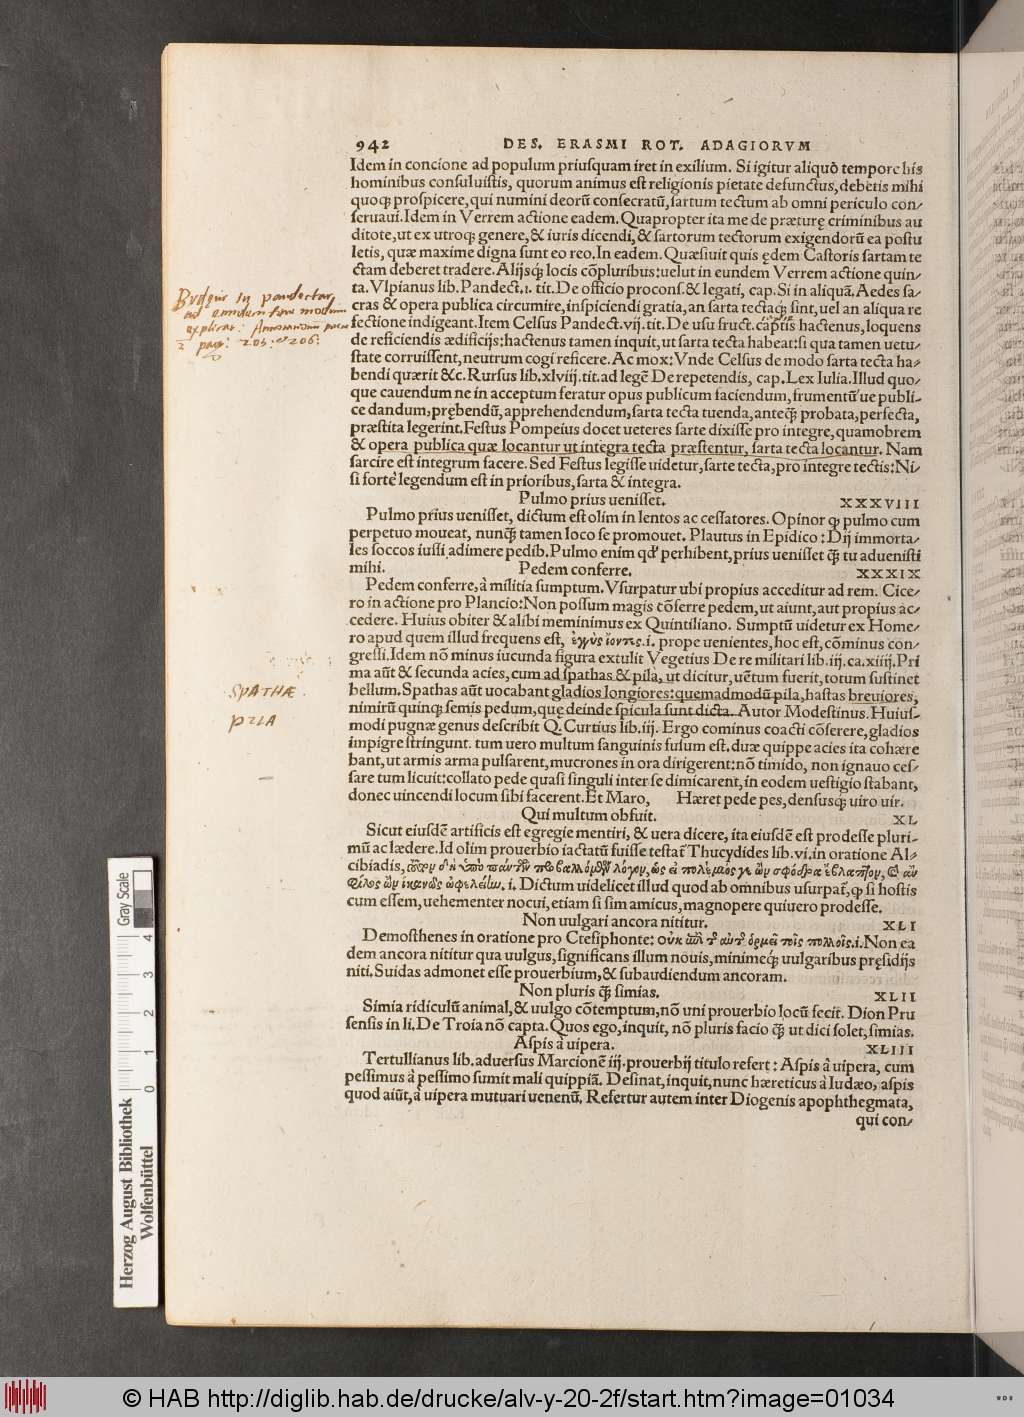 942 DES. ERASMI ROT. ADAGIORVM
Idem in concione ad populum priuſquam iret in exilium. Si igitur aliquò tempore his
hominibus conſuluiſtis, quorum animus eſt religionis pietate defunctus, debetis mihi
quoqꝫ proſpicere, qui numini deorũ conſecratũ, ſartum tectum ab omni periculo con⸗
ſeruaui. Idem in Verrem actione eadem. Quapropter ita me de præturę criminibus au
ditote, ut ex utroqꝫ genere, & iuris dicendi, & ſartorum tectorum exigendorũ ea poſtu
letis, quæ maxime digna ſunt eo reo. In eadem. Quæſiuit quis ędem Caſtoris ſartam te
ctam deberet tradere. Alijsqꝫ locis cõpluribus: uelut in eundem Verrem actione quin⸗
ta. Vlpianus lib. Pandect. 1. tit. De officio proconſ. & legati, cap. Si in aliquã. Aedes ſa⸗
cras & opera publica circumire, inſpiciendi gratia, an ſarta tectaqꝫ ſint, uel an aliqua re
fectione indigeant. Item Celſus Pandect. vij. tit. De uſu fruct. captis hactenus, loquens
de reficiendis ædificijs: hactenus tamen inquit, ut ſarta tecta habeat: ſi qua tamen uetu⸗
ſtate corruiſſent, neutrum cogi reficere. Ac mox: Vnde Celſus de modo ſarta tecta ha⸗
bendi quærit &c. Rurſus lib. xlviij. tit. ad legẽ De repetendis, cap. Lex Iulia. Illud quo⸗
que cauendum ne in acceptum feratur opus publicum faciendum, frumentũ'ue publi⸗
ce dandum, prębendũ, apprehendendum, ſarta tecta tuenda, anteqꝫ̃ probata, perfecta,
præſtita legerint. Feſtus Pompeius docet ueteres ſarte dixiſſe pro integre, quamobrem
& opera publica quæ locantur ut integra tecta præſtentur, ſarta tecta locantur. Nam
ſarcire eſt integrum facere. Sed Feſtus legiſſe uidetur, ſarte tecta, pro integre tectis: Ni⸗
ſi fortè legendum eſt in prioribus, ſarta & integra.
Pulmo prius ueniſſet. XXXVIII
Pulmo prius ueniſſet, dictum eſt olim in lentos ac ceſſatores. Opinor ꝙ pulmo cum
perpetuo moueat, nunqꝫ̃ tamen loco ſe promouet. Plautus in Epidico: Dij immorta⸗
les ſoccos iuſſi adimere pedib. Pulmo enim qd' perhibent, prius ueniſſet qꝫ̃ tu adueniſti
mihi. Pedem conferre. XXXIX
Pedem conferre, à militia ſumptum. Vſurpatur ubi propius acceditur ad rem. Cice⸗
ro in actione pro Plancio: Non poſſum magis cõferre pedem, ut aiunt, aut propius ac⸗
cedere. Huius obiter & alibi meminimus ex Quintiliano. Sumptũ uidetur ex Home⸗
ro apud quem illud frequens eſt, ἐγγὺς ἰόντες .i. prope uenientes, hoc eſt, cõminus con⸗
greſſi. Idem nõ minus iucunda figura extulit Vegetius De re militari lib. iij. ca. xiiij. Pri
ma aũt & ſecunda acies, cum ad ſpathas & pila, ut dicitur, uẽtum fuerit, totum ſuſtinet
bellum. Spathas aũt uocabant gladios longiores: quemadmodũ pila, haſtas breuiores,
nimirũ quinqꝫ ſemis pedum, quę deinde ſpicula ſunt dicta. Autor Modeſtinus. Huiuſ⸗
modi pugnæ genus deſcribit Q. Curtius lib. iij. Ergo cominus coacti cõſerere, gladios
impigre ſtringunt. tum uero multum ſanguinis fuſum eſt. duæ quippe acies ita cohære
bant, ut armis arma pulſarent, mucrones in ora dirigerent: nõ timido, non ignauo ceſ⸗
ſare tum licuit: collato pede quaſi ſinguli inter ſe dimicarent, in eodem ueſtigio ſtabant,
donec uincendi locum ſibi facerent. Et Maro, Hæret pede pes, denſusqꝫ uiro uir.
Qui multum obfuit. XL
Sicut eiuſdẽ artificis eſt egregie mentiri, & uera dicere, ita eiuſdẽ eſt prodeſſe pluri⸗
mũ ac lædere. Id olim prouerbio iactatũ fuiſſe teſtat̃ Thucydides lib. vi. in oratione Al⸗
cibiadis, προβαλλόμενον λόγον, ὡς εἰ πολέμιός γε ὢν σφόδρα ἔβλαπτον, κἂν
φίλος ὢν ἱκανῶς ὠφελοίην, i. Dictum uidelicet illud quod ab omnibus uſurpat̃, ꝙ ſi hoſtis
cum eſſem, uehementer nocui, etiam ſi ſim amicus, magnopere quiuero prodeſſe.
Non uulgari ancora nititur. XLI
Demoſthenes in oratione pro Cteſiphonte: οὐκ ἐπὶ τ͂ αὐτ͂ ὁρμεῖ τοῖς πολλοῖς .i. Non ea
dem ancora nititur qua uulgus, ſignificans illum nouis, minimeqꝫ uulgaribus pręſidijs
niti. Suidas admonet eſſe prouerbium, & ſubaudiendum ancoram.
Non pluris qꝫ̃ ſimias. XLII
Simia ridiculũ animal, & uulgo cõtemptum, nõ uni prouerbio locũ fecit. Dion Pru
ſenſis in li. De Troia nõ capta. Quos ego, inquit, nõ pluris facio qꝫ̃ ut dici ſolet, ſimias.
Aſpis à uipera. XLIII
Tertullianus lib. aduerſus Marcionẽ iij. prouerbij titulo refert: Aſpis à uipera, cum
peſſimus à peſſimo ſumit mali quippiã. Deſinat, inquit, nunc hæreticus à Iudæo, aſpis
quod aiũt, à uipera mutuari uenenũ. Refertur autem inter Diogenis apophthegmata,
qui con⸗
Budęus in pandectas
ad eundem fere modum
explicat: Annotationum
2 pag: 205. et 206.
SPATHÆ
PILA
Herzog August Bibliothek
Wolfenbüttel
Gray Scale
0 1 2 3 4
© HAB http://diglib.hab.de/drucke/alv-y-20-2f/start.htm?image=01034